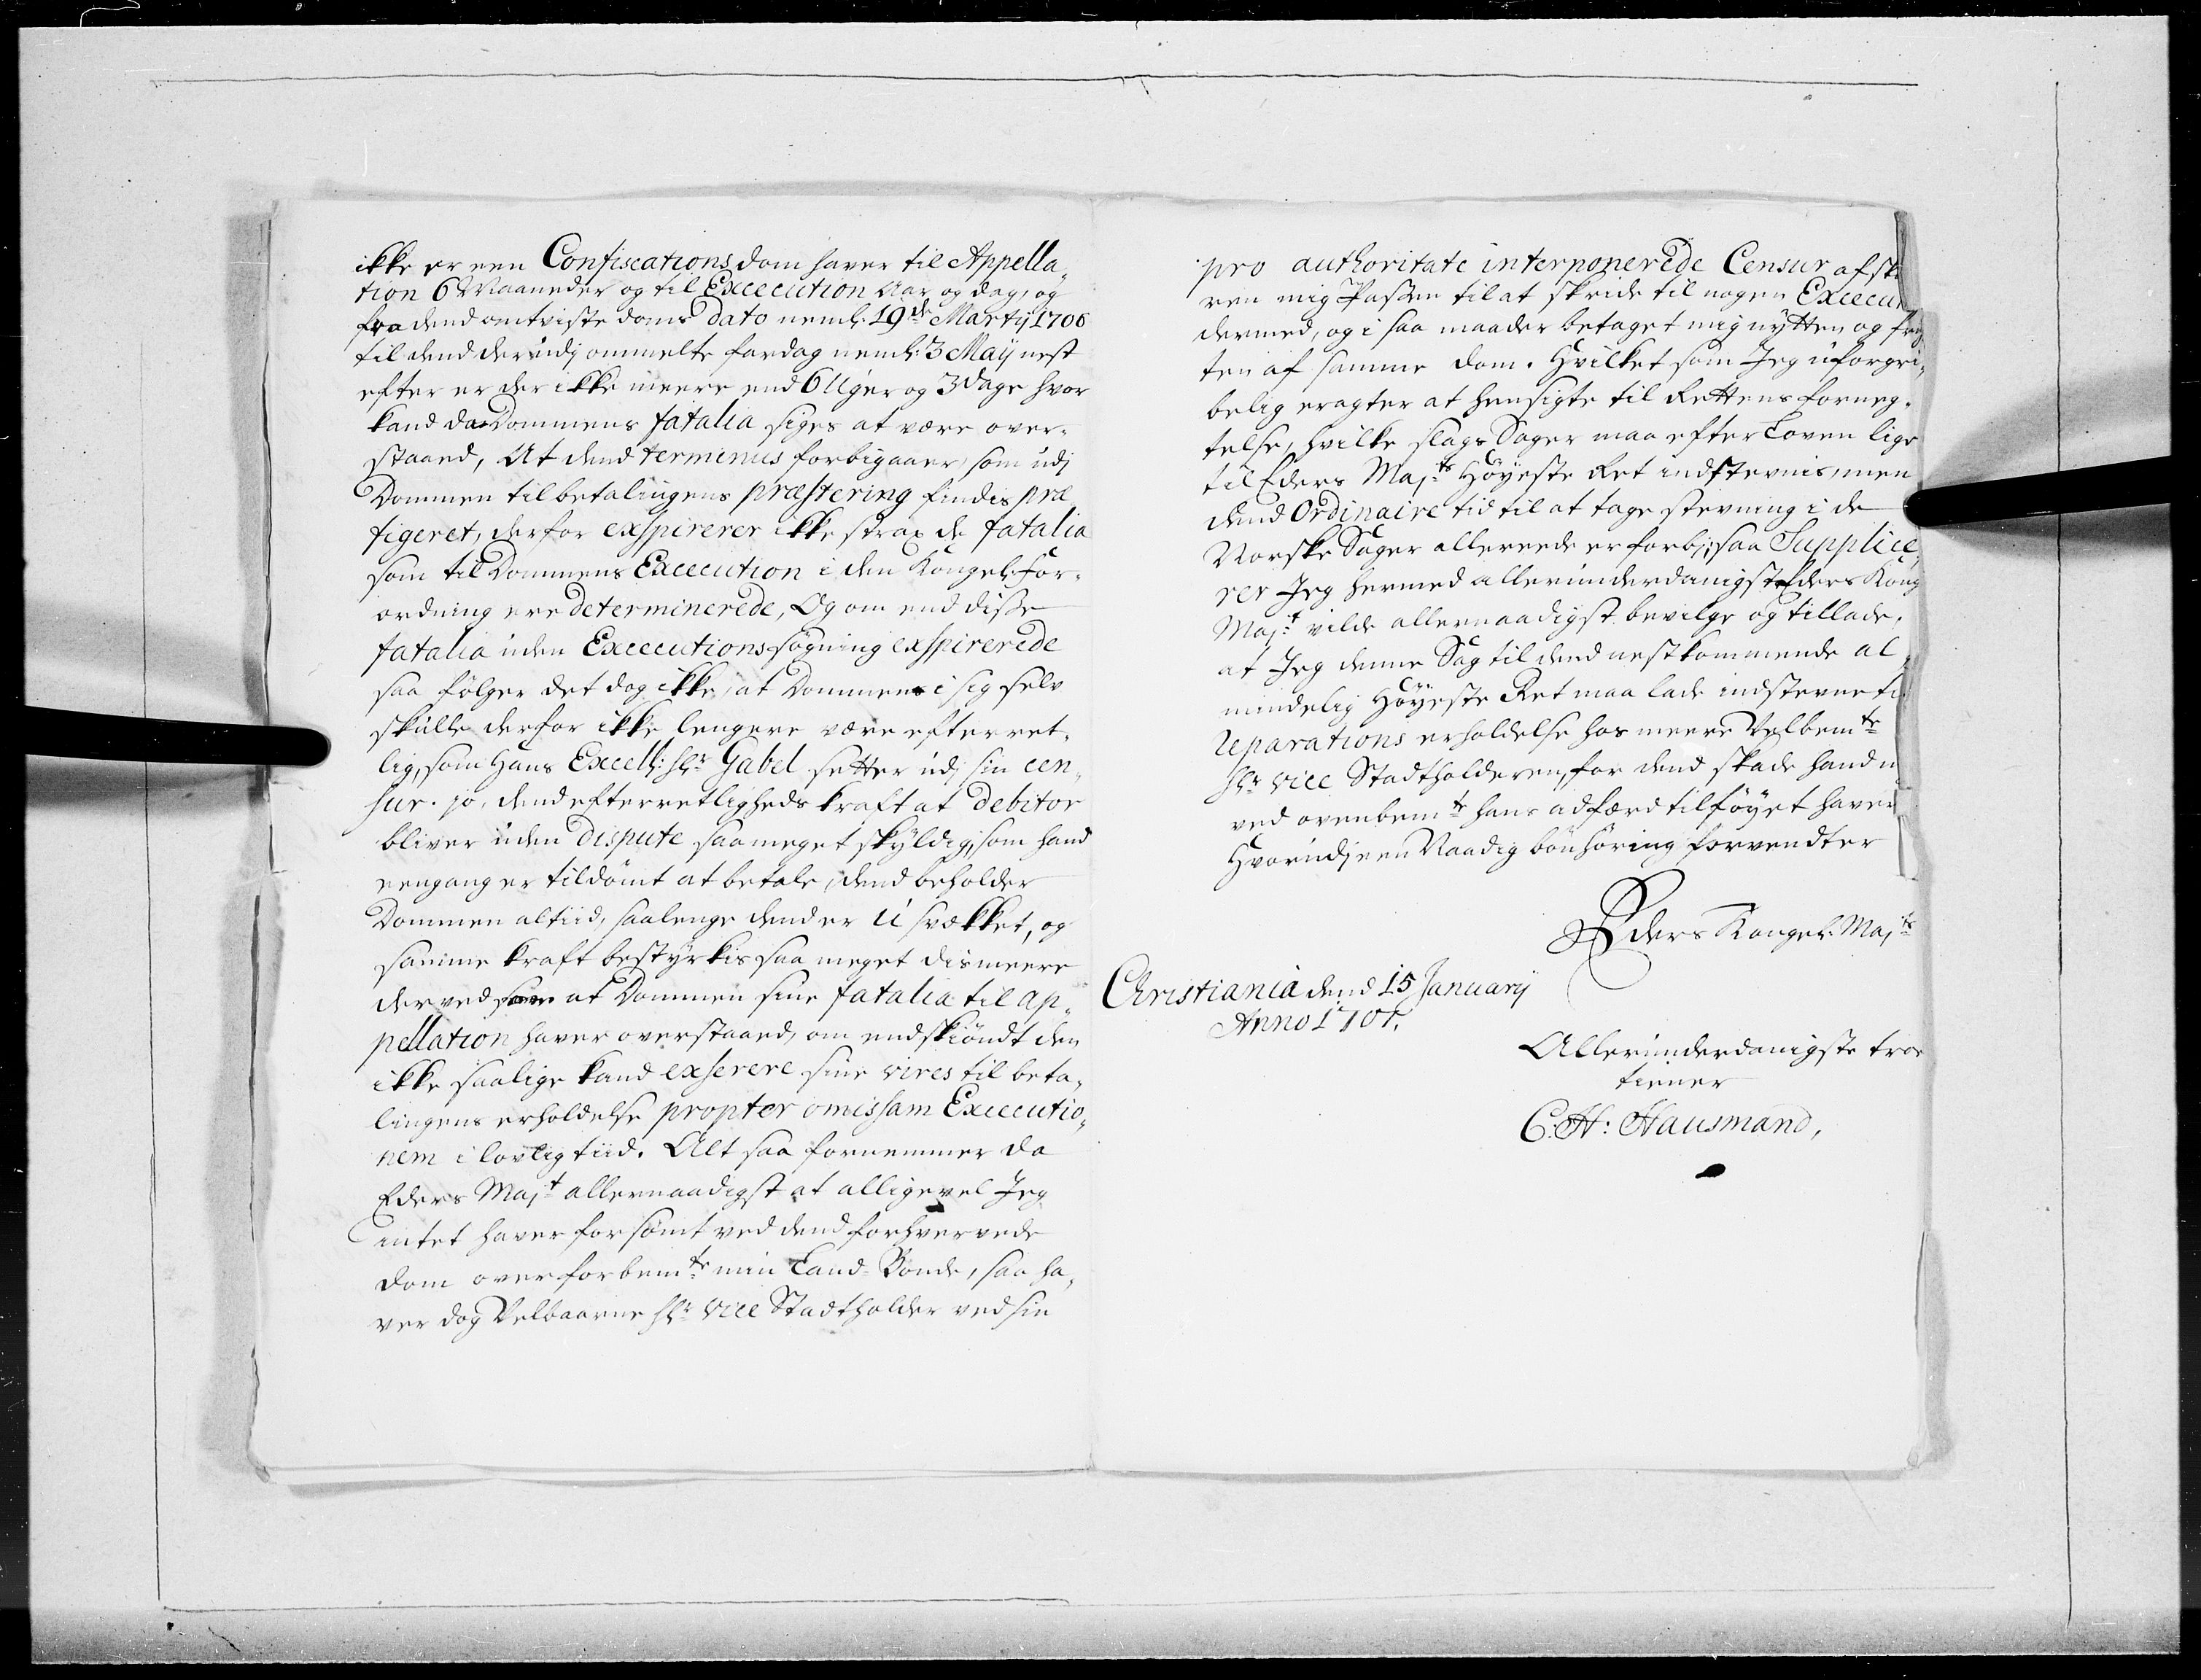 ikke er een Confiscations dom haver til Appella¬
tion 6 Maaneder og til Excecution Aar og dag, og
fra dend omtviste doms Dato neml: 19de Marty 1706
til dend derudj ommelte fardag neml: 3 Maij nest
efter er der ikke meere end 6 Uger og 3 dage hvor
kand da Dommens fatalia siges at være over¬
staaed, At dend terminus forbigaaer, som udj
Dommen til betalingens præstering findis præ
figeret, derfor exspirerer ikke strax de fatalia
som til Dommens Excecution i den Kongel: For¬
ordning ere determinerede, Og om end disse
fatalia uden Excecutions søgning exspirerede
saa følger det dog ikke, at Dommen i sig selv
skulle derfor ikke lengere være efterret¬
lig, som Hans Excell: Hr Gabel setter udj sin cen¬
sur. jo, dend efterretligheds kraft at debitor
bliver uden dispute saa meget skyldig, som hand
eengang er tildömt at betale, dend beholder
Dommen altiid, saalenge dend er u svækket, og
samme kraft bestyrkis saa meget dismeere
derved at Dommen sine fatalia til ap¬
pellation haver overstaaed, om endskiöndt den
ikke saalige kand exserere sine vires til beta¬
lingens erholdelse propter omissam Executio¬
nem i lovlig tiid. Alt saa fornemmer da
Eders Majt allernaadigst at alligevel Jeg
intet haver forsömt ved dend forhvervede
dom over forbemte min Land-Bonde, saa ha¬
ver dog Velbaarne Hr Vice Stadtholder ved sin
pro authoritate interponerede Censur afskaa
ren mig Passen til at skride til nogen Excecu
dermed, og i saa maader betaget mig nytten og frug
ten af samme dom. Hvilket som Jeg uforgri¬
belig eragter at hensigte til Rettens forneg¬
telse, hvilke slags Sager maa efter Loven lige
til Eders Majts Høyeste Ret indstevnis, men
dend Ordinaire tid til at tage stevning i de
Norske Sager allereede er forbj, saa Supplice¬
rer Jeg hermed allerunderdanigst Eders Kong
Majt vilde allernaadigst bevilge og tillade,
at Jeg denne Sag til dend nestkommende al
mindelig Høyeste Ret maa lade indstevne til
Reparations erholdelse hos meere Velbemte
Hr Vice Stadtholderen, for dend skade hand m
ved ovenbemte hans adfærd tilføyet haver
Hvorudj een Naadig bönhöring forvendter
Eders Kongel: Majts
Christiania dend 15 January
Anno 1707.
Allerunderdanigste troe
tiener
C: H: Hausmand,